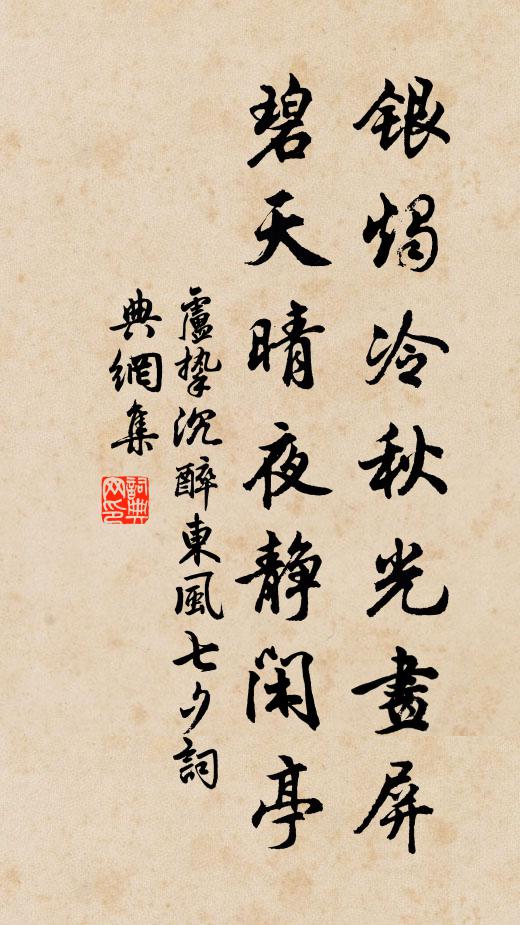 银烛冷秋光畫屏
碧天晴夜静閑亭
盧摯沉醉東風七夕詞
典網集
詞典网印